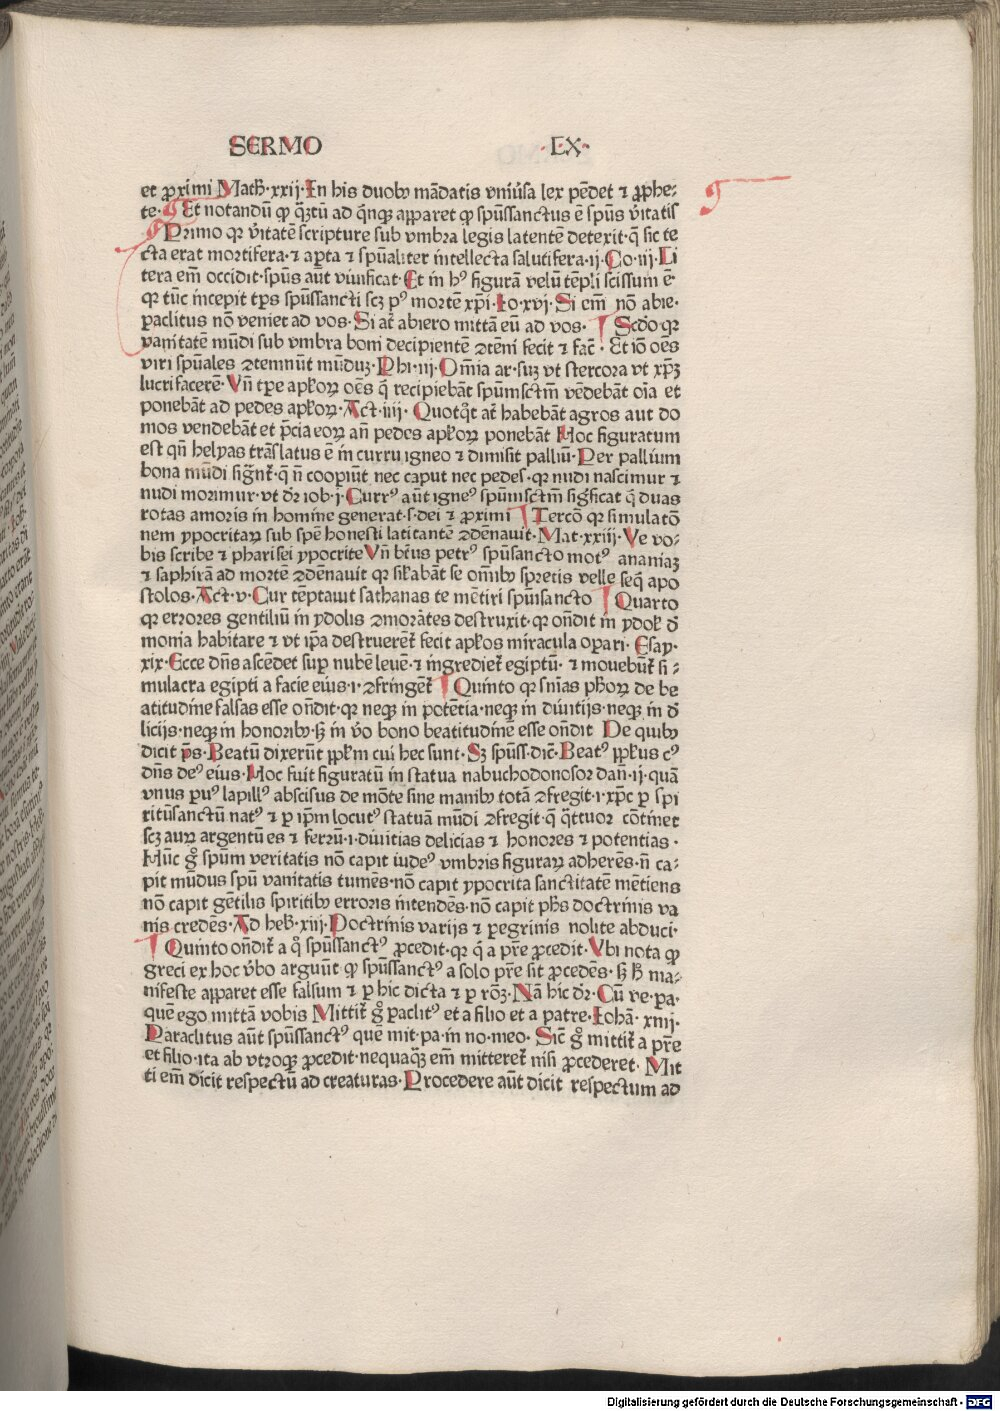 SERMO ·LX·
et ꝓximi Math̄·xxij·In his duob᷒ mādatis vniũsa lex pēdet ⁊ ꝓphe-
te· Et notandū ꝙ q̄ꝫtū ad q̄nqꝫ apparet ꝙ spūssanctus ē spūs v̄itatis
Primo qꝛ v̄itatē scripture sub vmbra legis latentē detexit·q̄ sic te
cta erat mortifera·⁊ apta ⁊ spūaliter intellecta salutifera·ij·Co·iij·Li
tera em̄ occidit·spūs aūt viuificat·Et in h᷒ figurā velū tēpli scissum ē
qꝛ tūc incepit tp̄s spūssancti scꝫ p᷒ mortē xp̄i·Io·xvj·Si em̄ nō abie·
paclitus nō veniet ad vos·Si at̄ abiero mittā eū ad vos· Scd̄o qꝛ
vanitatē mūdi sub vmbra boni decipientē ꝯtēni fecit ⁊ fac̄· Et iō oēs
viri spūales ꝯtemnūt mūduꝫ·Phi·iij·Om̄ia ar·suꝫ vt stercora vt xp̄ꝫ
lucri facerē·Vn̄ tp̄e ap̄loꝝ oēs q̄ recipiebāt spūmsctm̄ vēdebāt oīa et
ponebāt ad pedes ap̄loꝝ·Act·iiij· Quotq̄t at̄ habebāt agros aut do
mos vendebāt et p̄cia eoꝝ an̄ pedes ap̄loꝝ ponebāt Hoc figuratum
est qn̄ helyas trāslatus ē in curru igneo ⁊ dimisit palliū·Per pallium
bona mūdi sig̃nt̄·q̄ n̄ coopiūt nec caput nec pedes·qꝛ nudi nascimur ⁊
nudi morimur·vt dr̄ iob·j·Curr᷒ aūt igne᷒ spūmsctm̄ sig̃ficat q̄ duas
rotas amoris in homine generat·s·dei ⁊ ꝓximi Tercō qꝛ simulatō
nem ypocritaꝝ sub spē honesti latitantē ꝯdēnauit·Mat·xxiij·Ve vo-
bis scribe ⁊ pharisei ypocrite Vn̄ btūs petr᷒ spūsancto mot᷒ ananiaꝫ
⁊ saphirā ad mortē ꝯdēnauit qꝛ silabāt se om̄ib᷒ spretis velle seq̄ apo
stolos·Act·v·Cur tēptauit sathanas te mētiri spūisancto Quarto
qꝛ errores gentiliū in ydolis ꝯmorātes destruxit·qꝛ on̄dit in ydol᷒ d̄
monia habitare ⁊ vt ip̄a destruerent̄ fecit ap̄los miracula opari·Esay·
xix·Ecce dn̄s ascēdet sup nubē leuē·⁊ ingrediet̄ egiptū·⁊ mouebūt̄ si-
mulacra egipti a facie eius·i·ꝯfringēt̄ Quinto qꝛ sn̄ias ph̄oꝝ de be
atitudine falsas esse on̄dit·qꝛ neqꝫ in potētia·neqꝫ in diuitijs·neqꝫ in d̄
licijs·neqꝫ in honorib᷒·sꝫ in v̄o bono beatitudinē esse on̄dit De quib᷒
dicit p̄s·Beatū dixerūt pp̄lm cui hec sunt·Sꝫ spūss·dic̄·Beat᷒ pp̄lus c᷒
dn̄s de᷒ eius·Hoc fuit figuratū in statua nabuchodonosor dan̄·ij·quā
vnus pu᷒ lapill᷒ abscisus de mōte sine manib᷒ totā ꝯfregit·i·xp̄c p spi
ritūsanctū nat᷒ ⁊ p ip̄m locut᷒ statuā mūdi ꝯfregit·q̄ q̄ttuor cōtinet
scꝫ auꝝ argentū es ⁊ ferrū·i·diuitias delicias ⁊ honores ⁊ potentias·
Hūc g̊ spūm veritatis nō capit iude᷒ vmbris figuraꝝ adherēs·n̄ ca-
pit mūdus spū vanitatis tumēs·nō capit ypocrita sanctitatē mētiens
nō capit gētilis spiritib᷒ erroris intendēs·nō capit ph̄s doctrinis va
nis credēs·Ad heb̄·xiij·Doctrinis varijs ⁊ pegrinis nolite abduci·
Quinto on̄dit̄ a q̊ spūssanct᷒ ꝓcedit·qꝛ q̄ a pr̄e ꝓcedit·Vbi nota ꝙ
greci ex hoc v̄bo arguūt ꝙ spūssanct᷒ a solo pr̄e sit ꝓcedēs·sꝫ h̄ ma-
nifeste apparet esse falsum ⁊ p hic dicta ⁊ p rōꝫ·Nā hic dr̄·Cū ve·pa·
quē ego mittā vobis Mittit̄ g̊ paclit᷒ et a filio et a patre·Iohā·xiiij·
Paraclitus aūt spūssanct᷒ quē mit·pa·in no·meo· Sic̄ g̊ mittit̄ a pr̄e
et filio·ita ab vtroqꝫ ꝓcedit·nequaq̄ꝫ em̄ mitteret̄ nisi ꝓcederet· Mit
ti em̄ dicit respectū ad creaturas·Procedere aūt dicit respectum ad
Digitalisierung gefördert durch die Deutsche Forschungsgemeinschaft · DFG